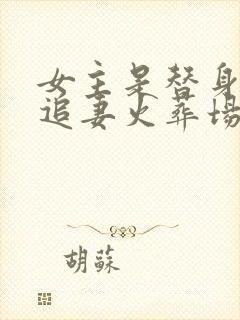 女主是替身
追妻火葬场
胡蘇